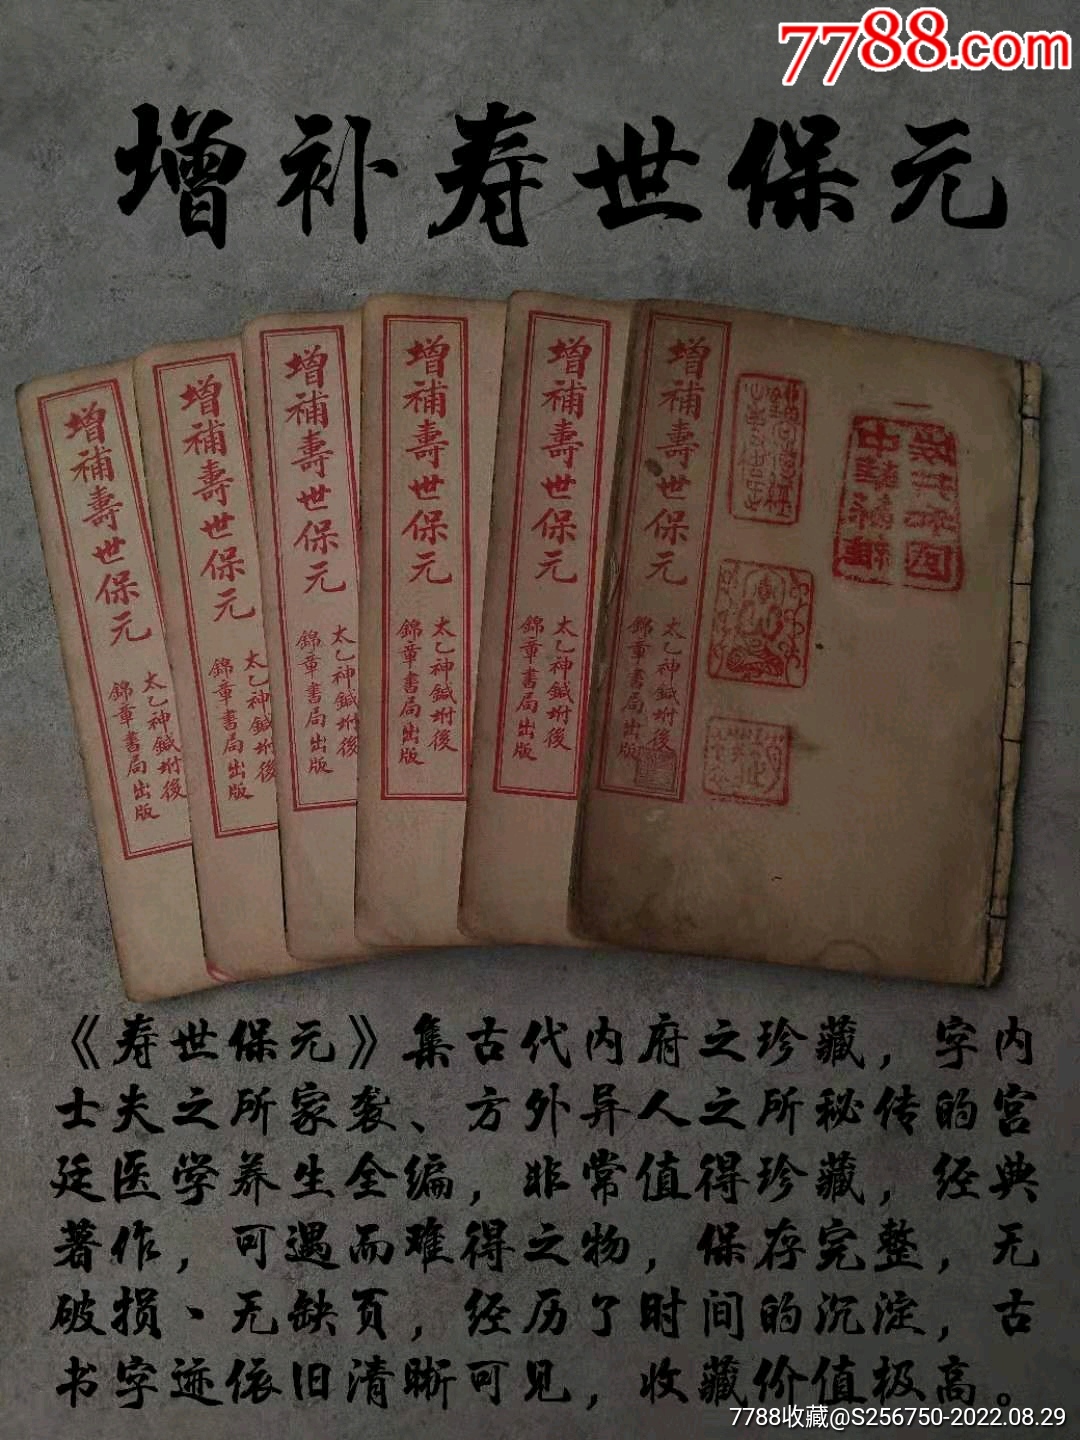 7788.com
增补寿世保元
增補壽世保元
太乙神鍼坿後
錦章書局出版
增補壽世保元
太乙神鍼坿後
錦章書局出版
增補壽世保元
太乙神鍼坿後
錦章書局出版
增補壽世保元
太乙神鍼坿後
錦章書局出版
增補壽世保元
太乙神鍼坿後
錦章書局出版
增補壽世保元
太乙神鍼坿後
錦章書局出版
一
《寿世保元》集古代内府之珍藏，字内
士夫之所家袭、方外异人之所秘传的宫
廷医学养生全编，非常值得珍藏，经典
著作，可遇而难得之物，保存完整，无
破损、无缺页，经历了时间的沉淀，古
书字迹依旧清晰可见，收藏价值极高。
7788收藏@S256750-2022.08.29